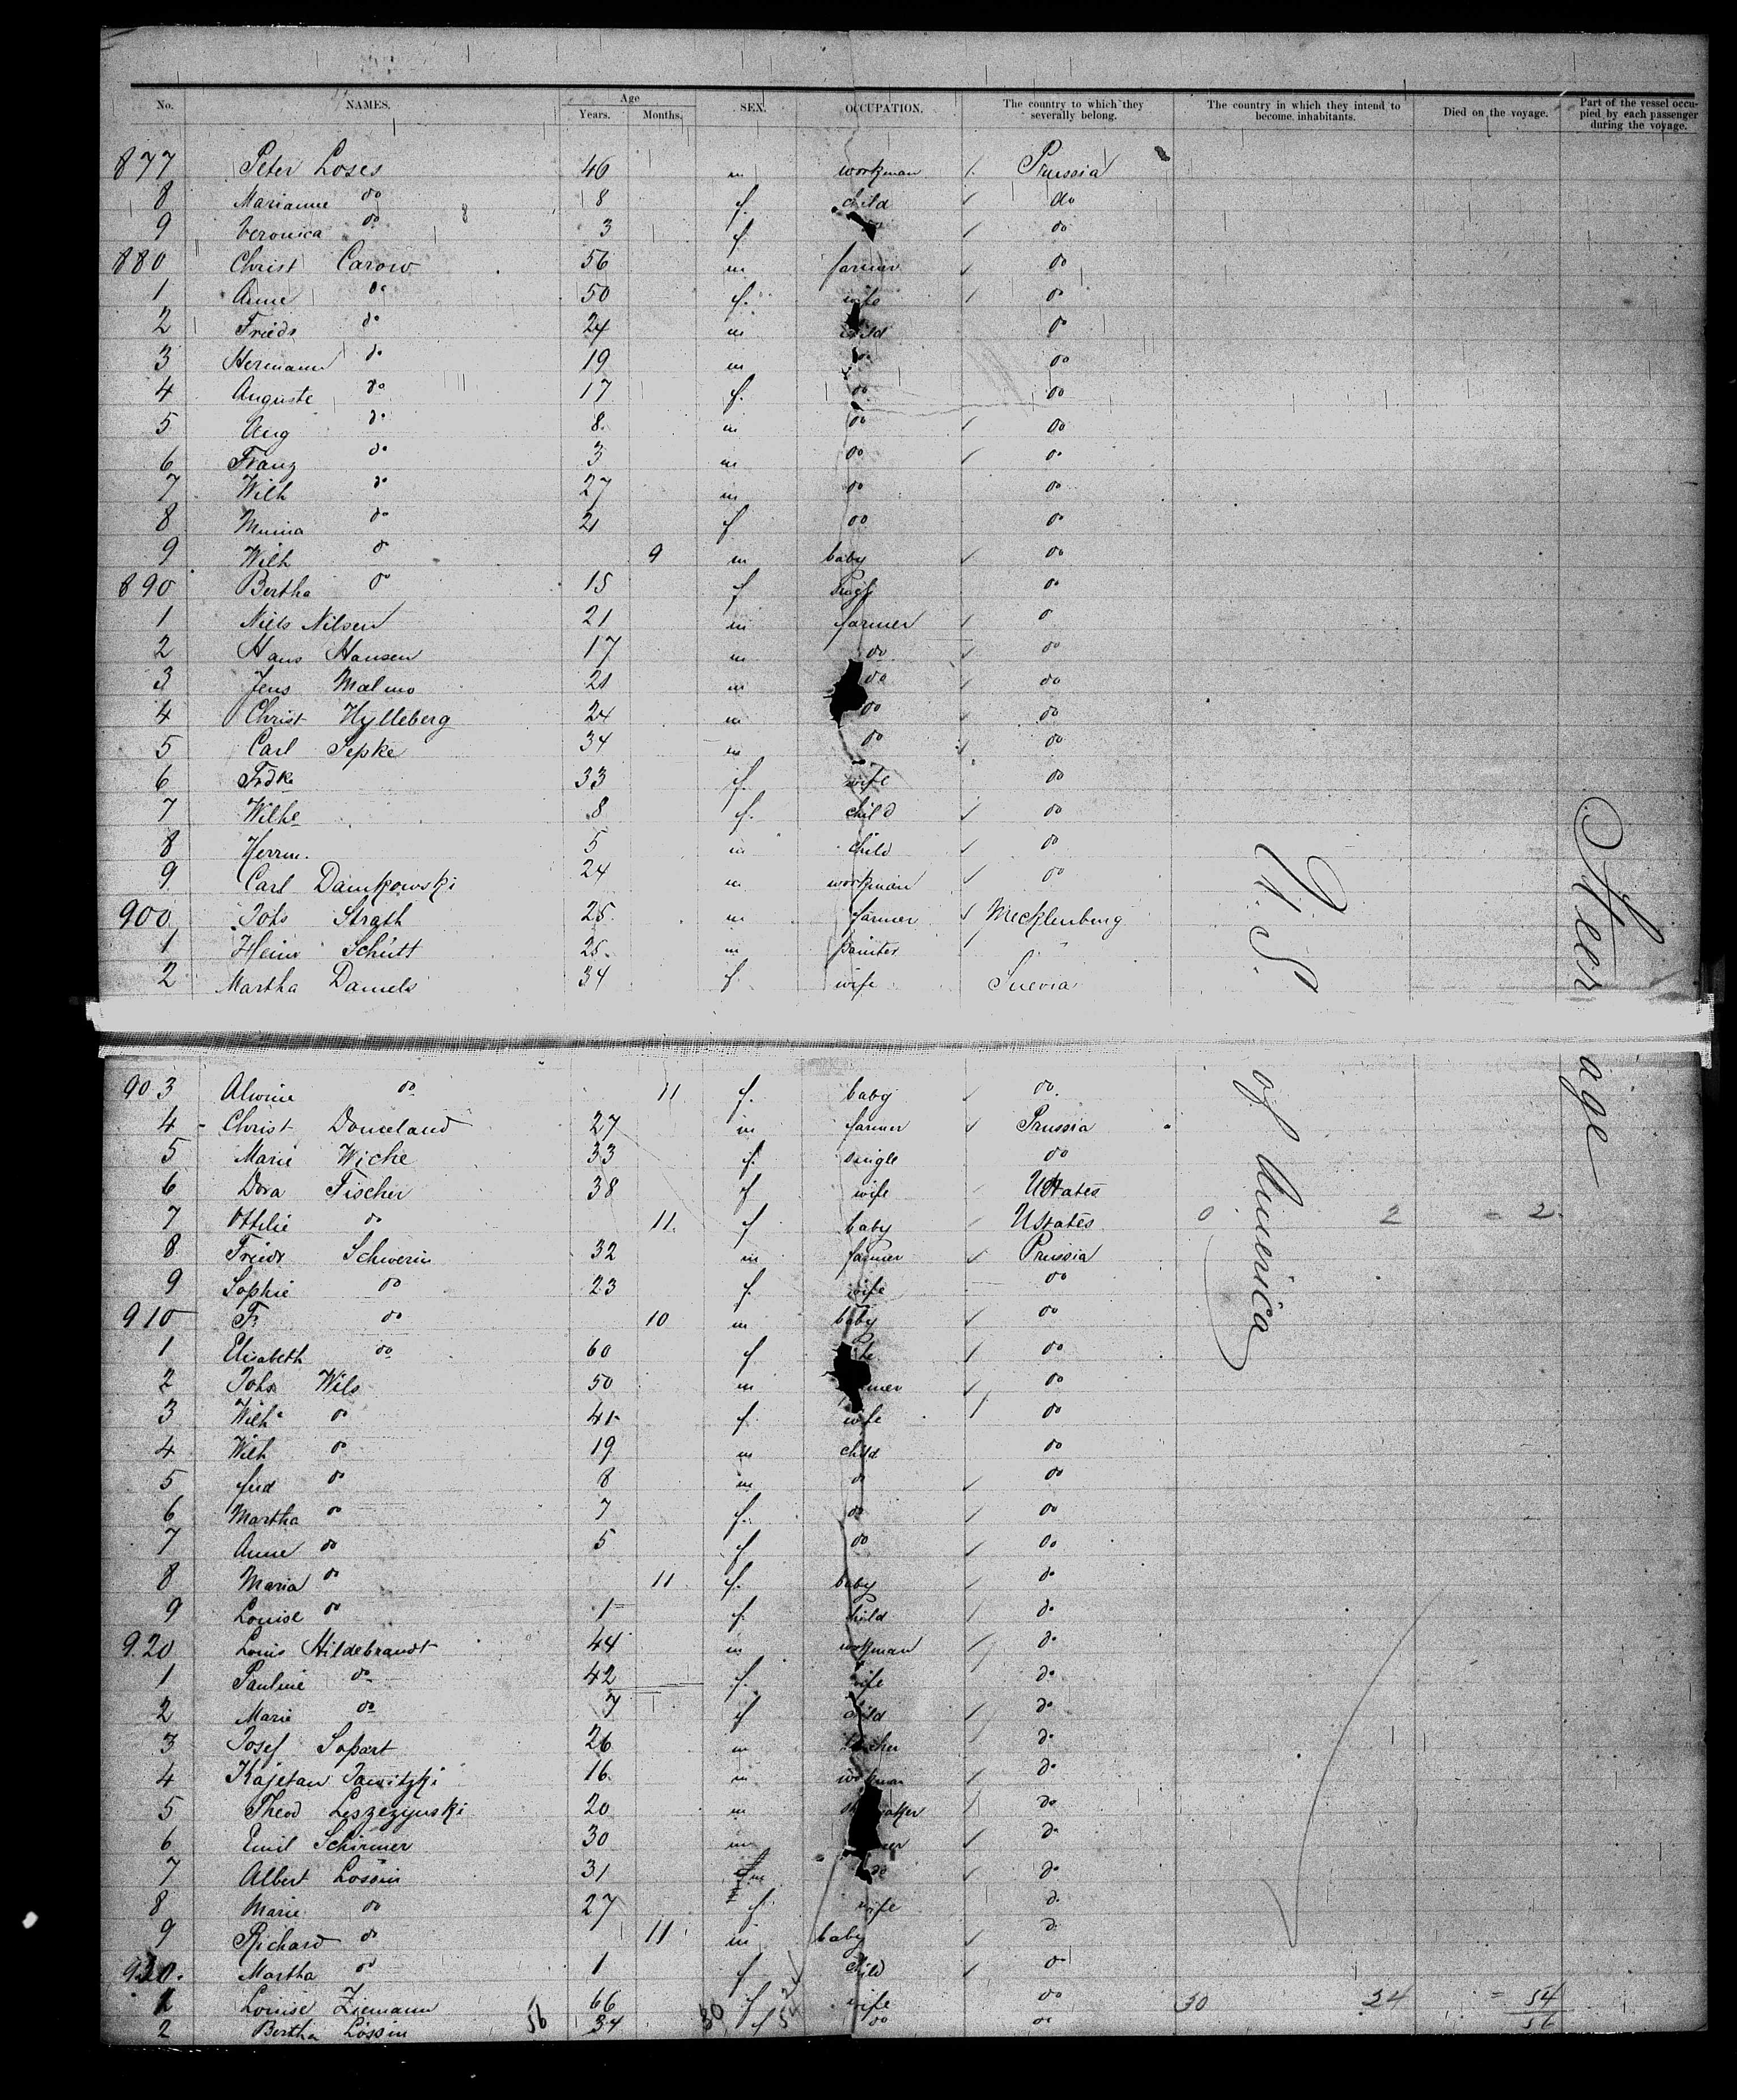 No. NAMES. Age Years. Months. SEX. OCCUPATION. The country to which they severally belong. The country in which they intend to become inhabitants. Died on the voyage. Part of the vessel occupied by each passenger during the voyage.
877 Peter Loses 46 m workman Prussia
8 Marianne do 8 f. child do
9 Veronica do 3 f. do
880 Christ Carow 56 m farmer do
1 Anne do 50 f. wife do
2 Friedr do 24 m child do
3 Hermann do 19 m do
4 Auguste do 17 f. do do
5 Aug do 8 m do do
6 Franz do 3 m do do
7 Wilh do 27 m do do
8 Minna do 21 f do do
9 Wilh do 9 m baby do
890 Bertha do 15 f single do
1 Niels Nilsen 21 m farmer do
2 Hans Hansen 17 m do do
3 Jens Malmo 21 m do do
4 Christ Hylleberg 24 m do do
5 Carl Sepke 34 m do do
6 Frdke 33 f. wife do
7 Wilhe 8 f. child do
8 Herrm. 5 m child do
9 Carl Damkowski 24 m workman do
900 Johs Strath 25 m farmer Mecklenburg
1 Heinr Schütt 25 m painter "
2 Martha Daniels 34 f. wife Suevia
U. S. of America
Steerage
903 Alwine do 11 f. baby do
4 Christ Domeland 27 m farmer Prussia
5 Marie Wiche 33 f. single do
6 Dora Fischer 38 f wife UStates
7 Ottilie do 11 f baby UStates 0 2 = 2
8 Friedr Schwerin 32 m farmer Prussia
9 Sophie do 23 f. wife do
910 Fr do 10 m baby do
1 Elisabeth do 60 f do
2 Johs Wils 50 m do
3 Wilhe do 41 f. wife do
4 Wilh do 19 m child do
5 do 8 m do do
6 Martha do 7 f. do do
7 Anne do 5 f do do
8 Maria do 11 f. baby do
9 Louise do 1 f. child do
920 Louis Hildebrandt 44 m workman do
1 Pauline do 42 f. wife do
2 Marie do 7 f child do
3 Josef Sopart 26 m do
4 Kajetan Jawitzki 16 m workman do
5 Theod Leszezynski 20 m do
6 Emil Schirmer 30 m do
7 Albert Lossin 31 m do do
8 Marie do 27 f wife do
9 Richard do 11 m baby do
930 Martha do 1 f child do
1 Louise Ziemann 66 f wife do 30 24 = 54
2 Bertha Lossin 56 34 30 f do do 56